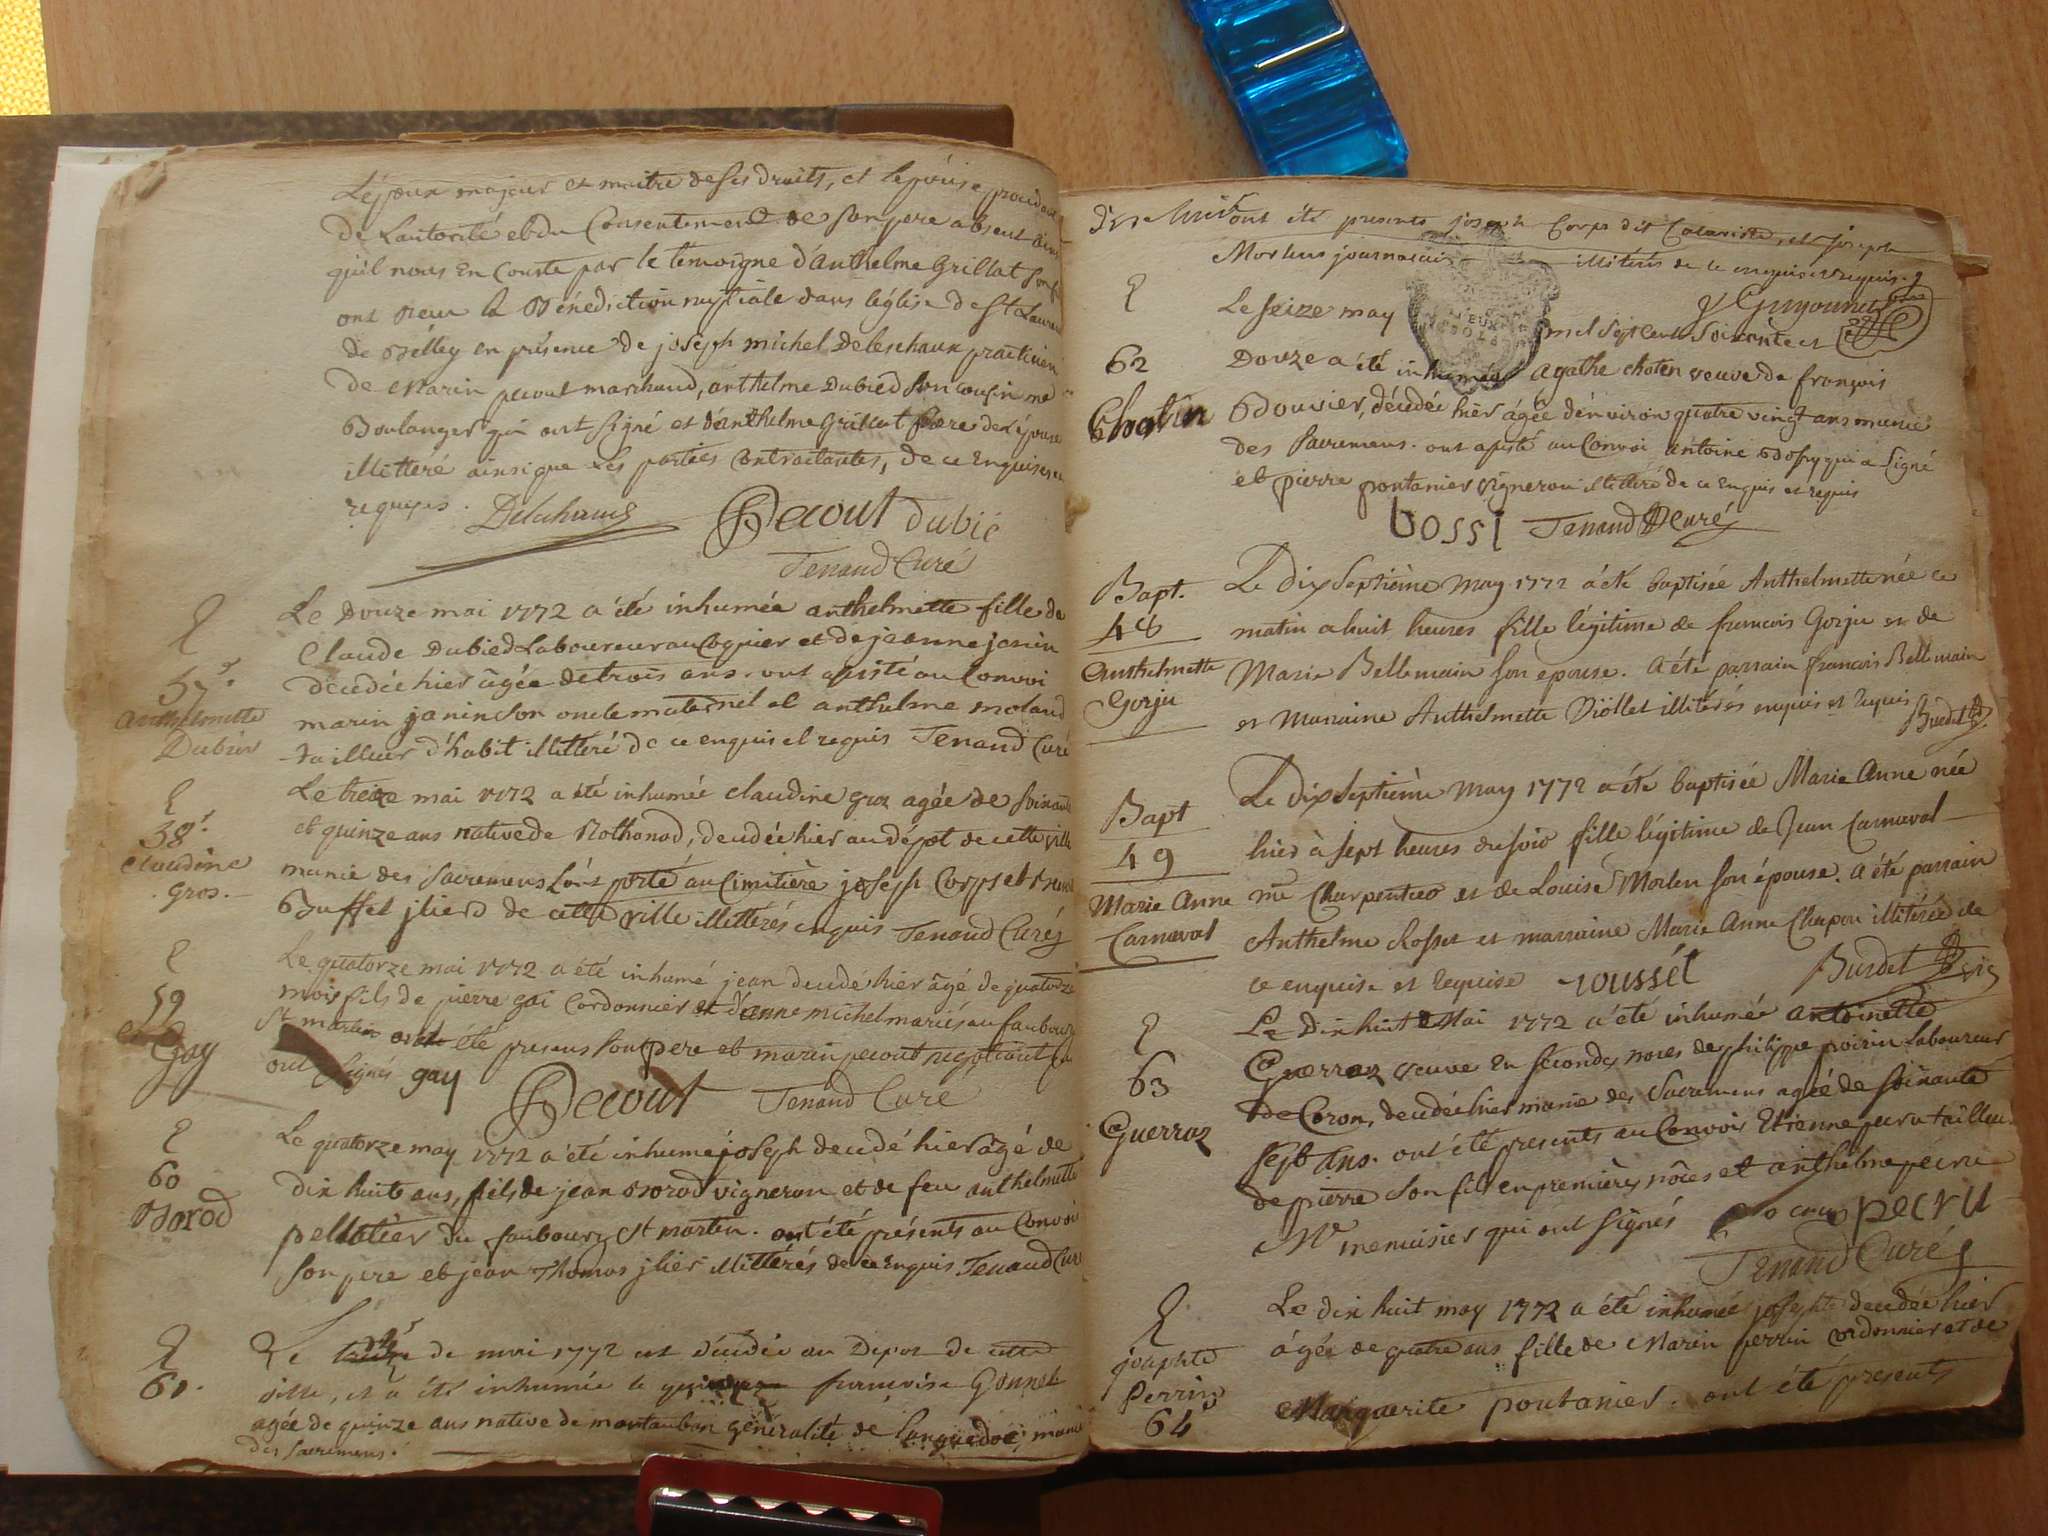 L'époux majeur et maitre de ses droits, et l'épouse procedant
de L'autorité et du Consentement de son pere absent ainsi
qu'il nous En Conste par le temoigne d'Anthelme Grillat
ont Reçu la Bénédiction nuptiale dans l'église de St Laurent
de Belley en présence de joseph michel Deleschaux practicien
de Marin pecout marchand, anthelme Dubied son cousin me
Boulanger qui ont signé et d'anthelme Grillat frere de L'épouse
illitteré ainsi que Les parties Contractantes, de ce Enquises et
requises. Delechaux Pecout Dubié
Tenand Curé
Le Douze mai 1772 a été inhumée anthelmette fille de
Claude Dubied Laboureur au Coquier et de jeanne janin
57e.
decedée hier âgée de trois ans. ont assisté au Convoi
anthelmette
marin janin son oncle maternel et anthelme molard
Dubied
tailleur d'habit illitteré de ce enquis et requis Tenand Curé
Le treize mai 1772 a été inhumée claudine groz agée de soixante
58e.
et quinze ans native de Rothonod, decedée hier au dépôt de cette ville
claudine
munie des sacremens L'ont porté au Cimitière joseph Corps et
gros.
Buffet jlier de cette ville illittérés enquis Tenand Curé
Le quatorze mai 1772 a été inhumé jean decedé hier âgé de quatorze
59
mois fils de pierre gai Cordonnier et d'anne michel mariés au faubourg
St martin ont été presens son pere et marin pecout negotiant
Gay
ont signés gay Pecout Tenand Curé
Le quatorze may 1772 a été inhumé joseph decedé hier âgé de
60
dix huit ans, fils de jean Borod vigneron et de feu anthelmette
Borod
pellatier du faubourg St martin. ont été présents au Convoi
son pere et jean Thomas jlier illittérés de ce Enquis Tenand Curé
Le de mai 1772 est décédée au Depot de cette
61.
ville, et a été inhumée le françoise Gonnet
agée de quinze ans native de montauban généralité de Languedoc, munie
des sacremens.
ont été presents joseph Corps dit et joseph
Morlens journalier illitérés de ce enquis et requis.
Guyonnet
Le seize may mil sept cent soixante et
62
Douze a été inhumée agathe choten veuve de françois
Chotin
Bouvier, décédée hier âgée d'environ quatre vingt ans munie
des sacremens. ont assisté au Convoi antoine Bossy qui a signé
et pierre pontanier vigneron illitteré de ce Enquis et requis
bossi Tenand Curé
Bapt.
48
Anthelmette
Gorju
Le Dix Septième May 1772 a été baptisée Anthelmette née ce
matin a huit heures fille légitime de francois Gorju et de
Marie Bellemain son epouse. A été parrain francois Bellemain
et Marraine Anthelmette Viollet illitérés enquis et requis Burdet
Bapt
49
Marie Anne
Carnaval
Le Dix Septième May 1772 a été baptisée Marie Anne née
hier à sept heures du soir fille légitime de Jean Carnaval
me Charpentier et de Louise Morlen son épouse. A été parrain
Anthelme Rosset et marraine Marie Anne Chapon illitérée de
ce enquise et requise roussét Burdet
Le Dix huit Mai 1772 a été inhumée antoinette
63
Guerraz veuve En secondes noces de philippe poirin Laboureur
Guerraz
de Coron, decedée hier munie des Sacremens agée de soixante
sept ans. ont été presents au Convoi Etienne pecru tailleur
de pierre son fils en premières nôces et anthelme pecru
Me menuisier qui ont signés pecru
Tenand Curé
Le dix huit may 1772 a été inhumée josephte decedée hier
josephte
âgée de quatre ans fille de Marin perrin cordonnier et de
Perrin
64
Marguerite pontanier. ont été présents